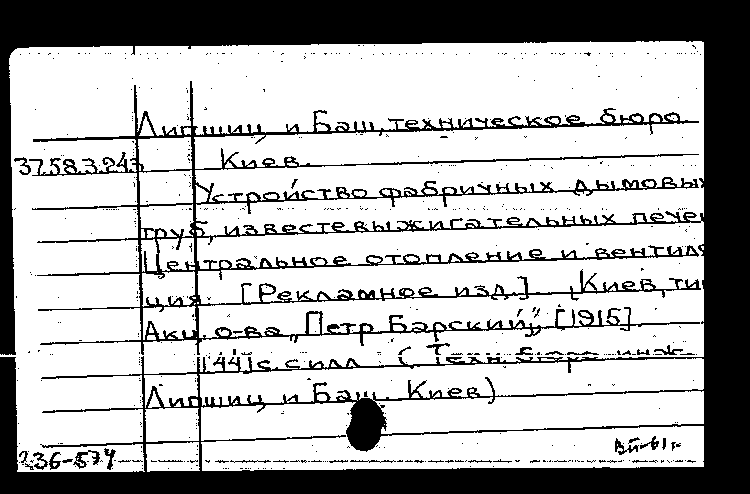 Липшиц и Баш, техническое бюро
37.58.3.243 Киев.
Устройство фабричных дымовы
труб, известевыжигательных пече
Центральное отопление и вентиля
ция. [Рекламное изд.] [Киев, ти
Акц. о-ва „Петр Барский", [1915].
[44] с. с илл. (Техн. бюро инж.
Липшиц и Баш. Киев)
236-574